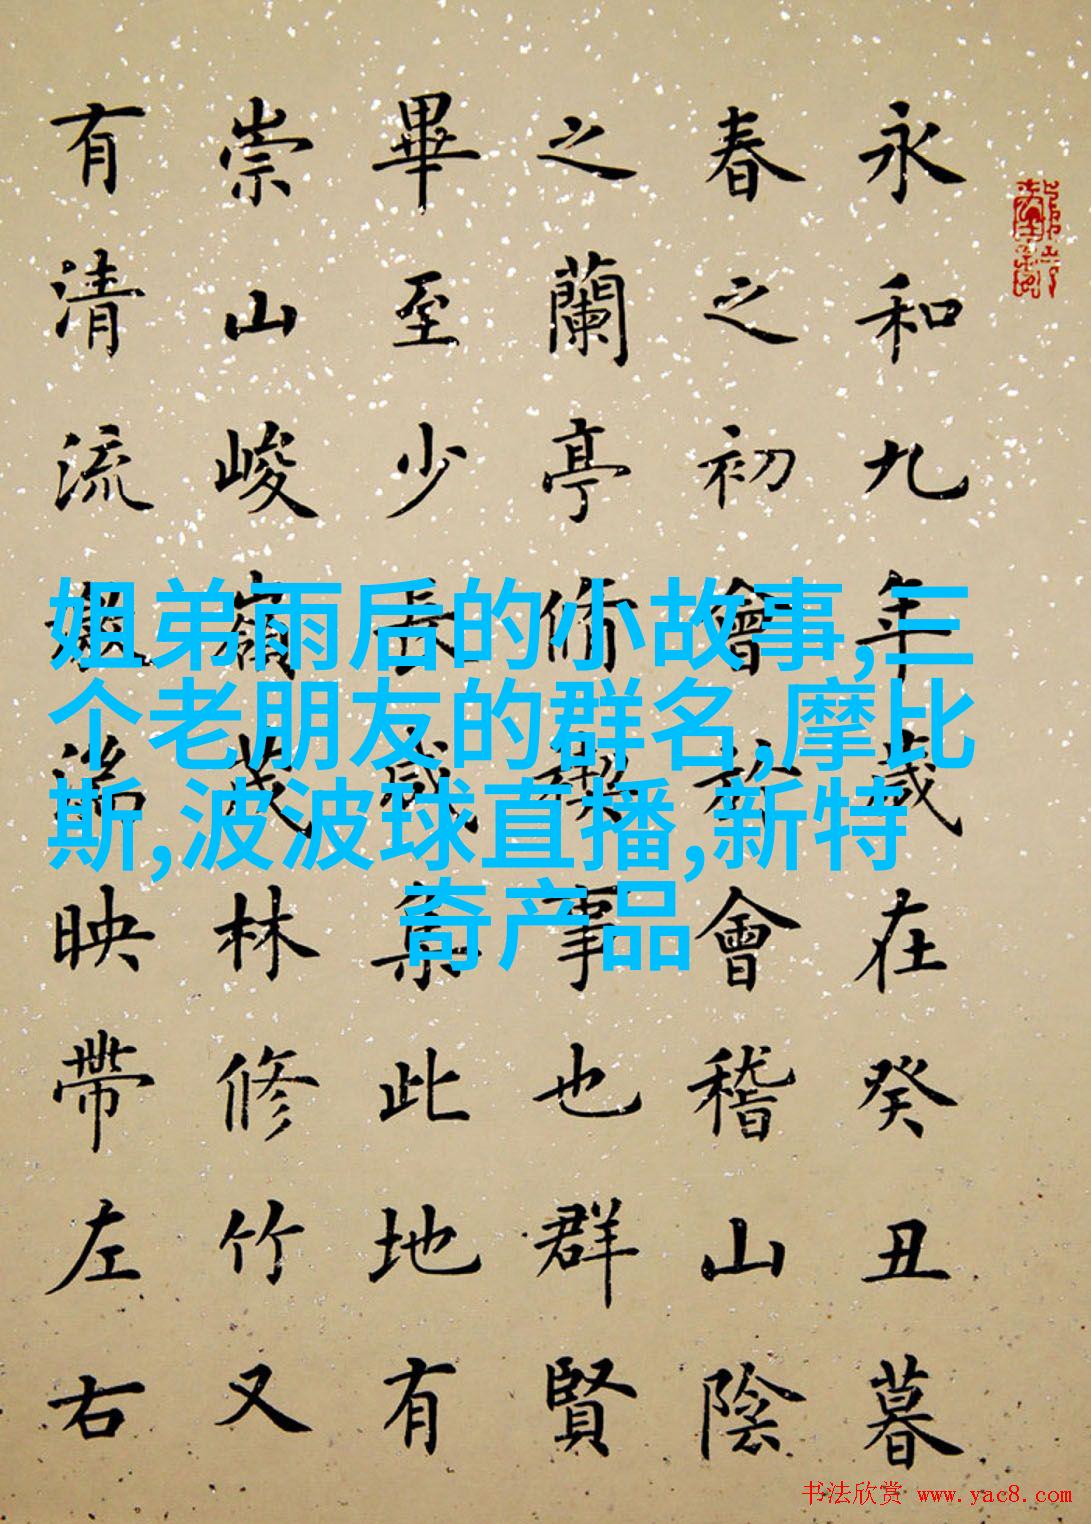 永和九年歲在癸丑暮
春之初會於會稽山陰
之蘭亭脩禊事也群賢
畢至少長咸集此地有
崇山峻嶺茂林修竹又
有清流激湍映帶左右
姐弟雨后的小故事,三
个老朋友的群名,摩比
斯,波波球直播,新特
奇产品
书法欣赏 www.yac8.com